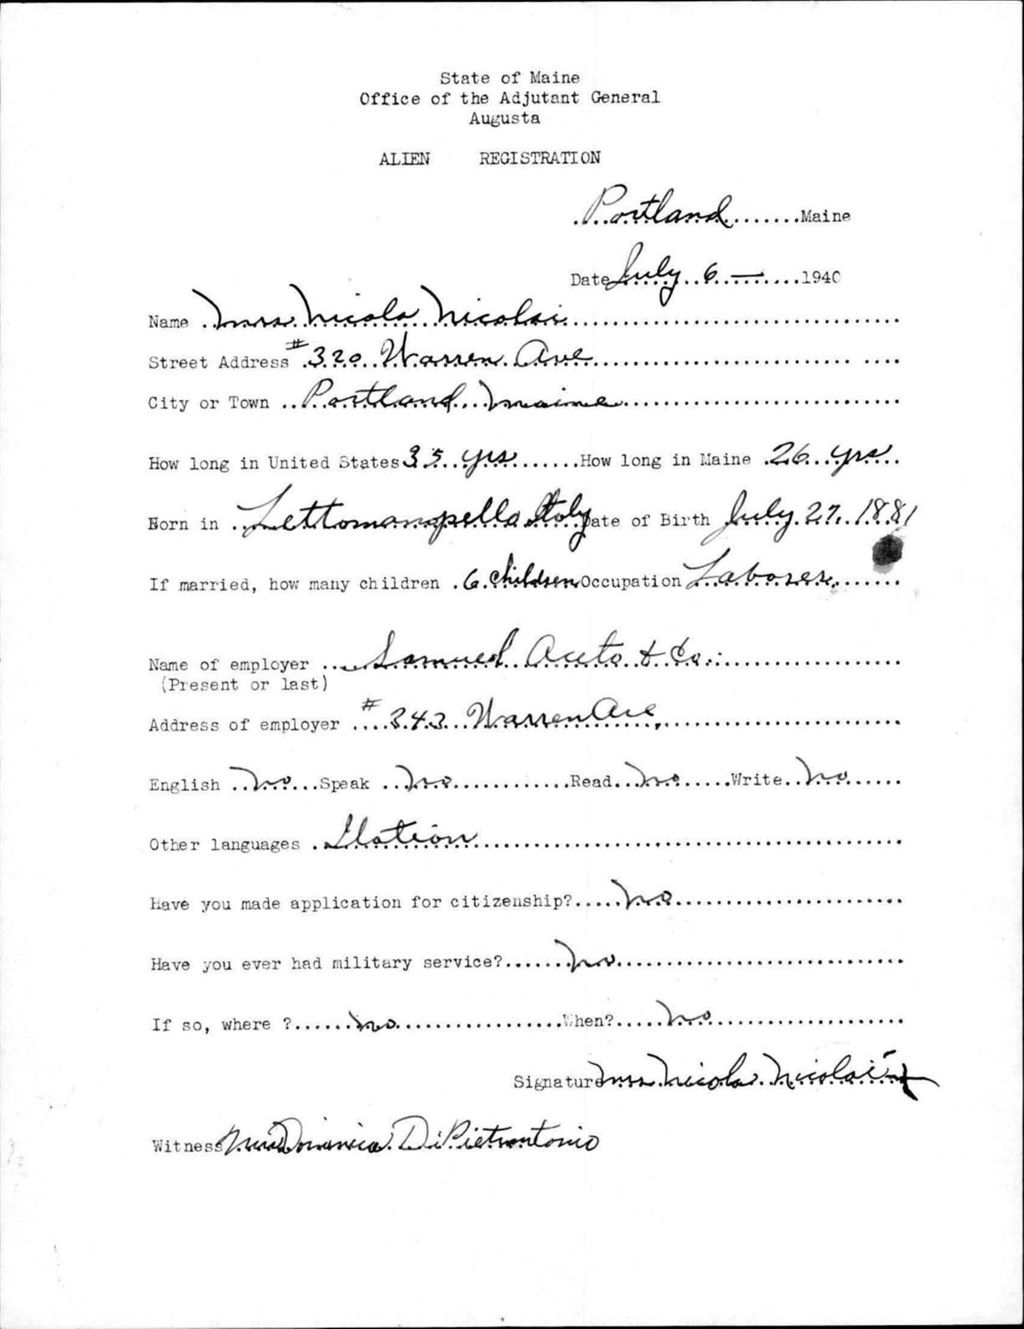 State of Maine
Office of the Adjutant General
Augusta
ALIEN REGISTRATION
Portland Maine
Date July 6 — 1940
Name Mrs Nicola Nicolai
Street Address #320 Warren Ave
City or Town Portland Maine
How long in United States 35 yrs How long in Maine 26 yrs
Born in Lettomanopella Italy Date of Birth July 27, 1881
If married, how many children 6 children Occupation Laborer
Name of employer Samuel Aceto & Co.
(Present or last)
Address of employer #343 Warren Ave,
English No Speak No Read No Write No
Other languages Itation
Have you made application for citizenship? No
Have you ever had military service? No
If so, where ? No When? No
Signature Mrs Nicola Nicolai X
Witness Mrs Domenica DiPietrantonio